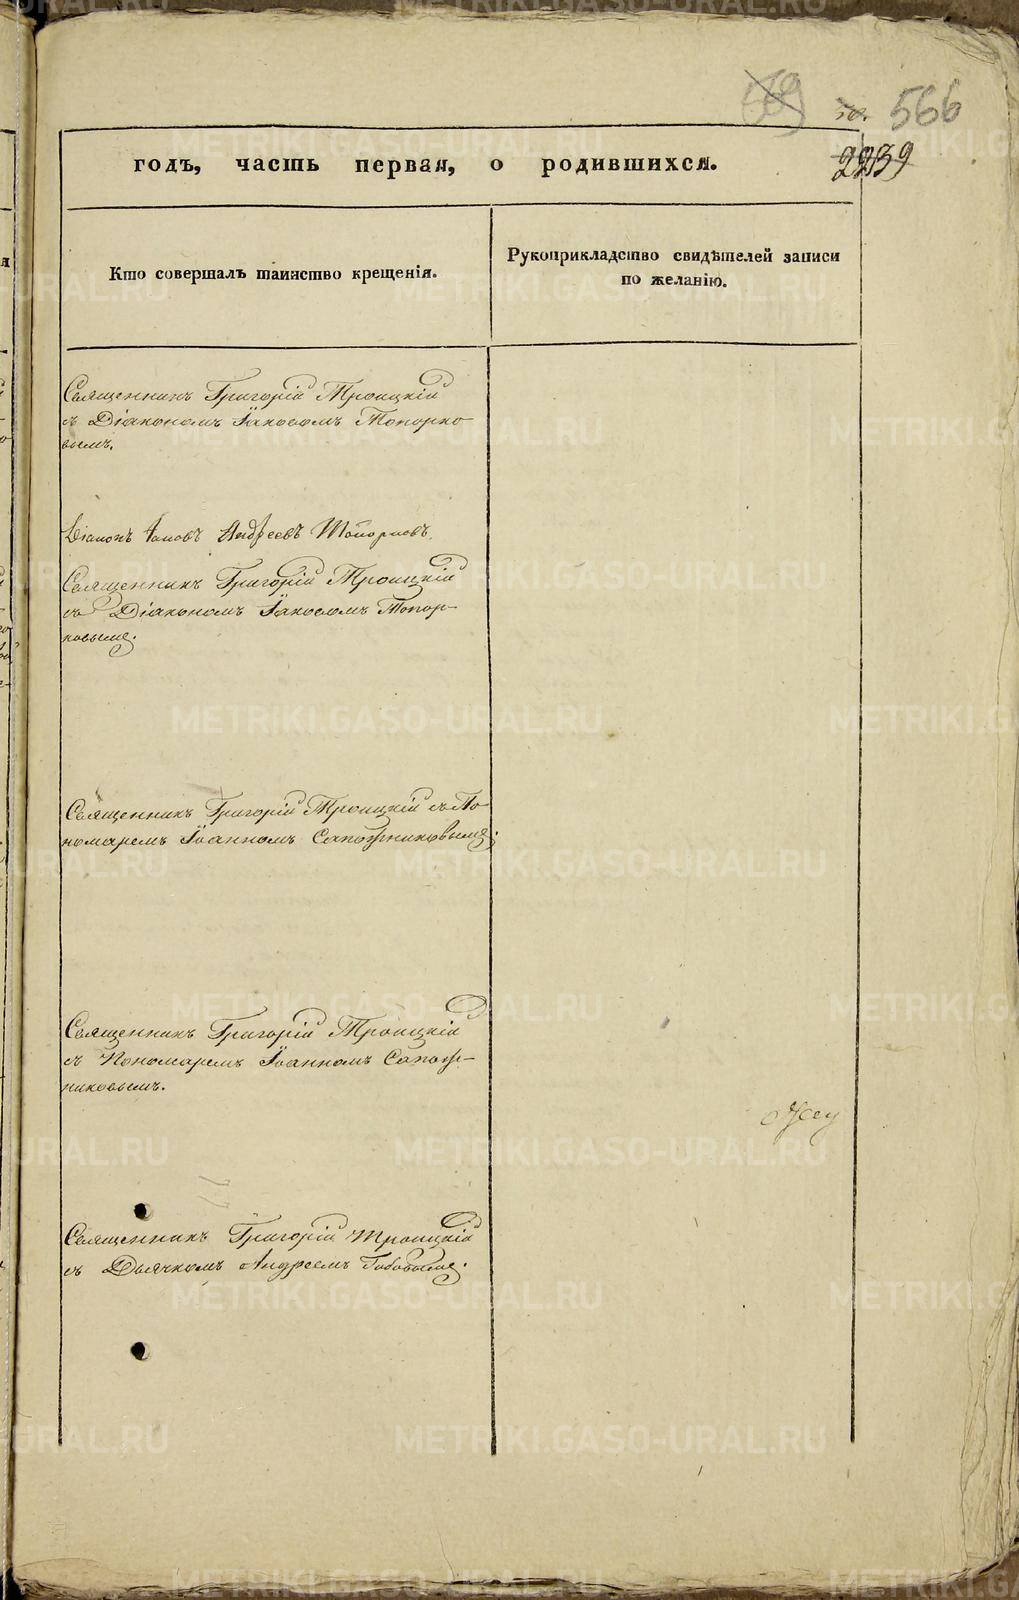 566
2239
годъ, часть первая, о родившихся.
Кто совершалъ таинство крещенія.
Рукоприкладство свидѣтелей записи
по желанію.
Священникъ Григорій Троицкій
съ Діакономъ Іаковомъ Топорко
вымъ.
Діаконъ Іаковъ Андреевъ Топорковъ.
Священникъ Григорій Троицкій
съ Діакономъ Іаковомъ Топор-
ковымъ.
Священникъ Григорій Троицкій съ По-
номаремъ Іоанномъ Сапожниковымъ.
Священникъ Григорій Троицкій
съ Пономаремъ Іоанномъ Сапож-
никовымъ.
Священникъ Григорій Троицкій
съ Дьячкомъ Андреемъ
METRIKI.GASO-URAL.RU